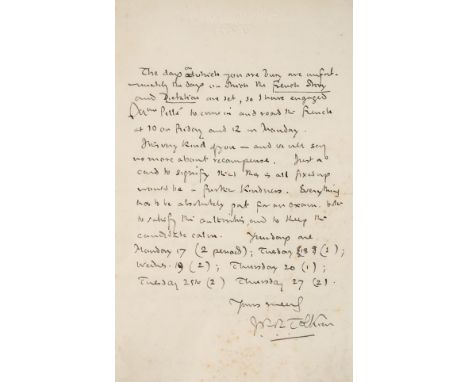 The days on which you are busy are unfort-
unately the days on which the French Story
and Dictation are set, so I have engaged
to come in and read the French
at 10 on Friday and 12 on Monday.
It is very kind of you — and we will say
no more about recompense. Just a
card to signify that this is all fixed up
would be a further kindness. Everything
has to be absolutely pat for an exam. both
to satisfy the authorities, and to keep the
candidates calm. Your days are
Monday 17 (2 periods); Tuesday 18 (1);
Wednes. 19 (2); Thursday 20 (1);
Tuesday 25th (2) Thursday 27 (2).
Yours sincerely
J. R. R. Tolkien